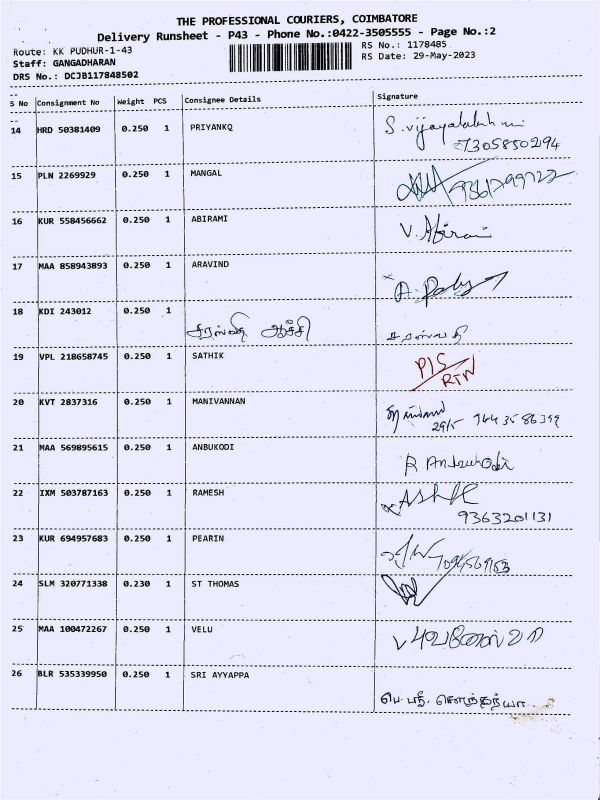 THE PROFESSIONAL COURIERS, COIMBATORE
Delivery Runsheet - P43 - Phone No.:0422-3505555 - Page No.:2
Route: KK PUDHUR-1-43
RS No.: 1178485
Staff: GANGADHARAN
RS Date: 29-May-2023
DRS No.: DCJB117848502
S No Consignment No Weight PCS Consignee Details Signature
14 HRD 50381409 0.250 1 PRIYANKQ S.vijayalakshmi
7305850294
15 PLN 2269929 0.250 1 MANGAL
16 KUR 558456662 0.250 1 ABIRAMI V. Abirami
17 MAA 858943893 0.250 1 ARAVIND
18 KDI 243012 0.250 1
சரஸ்வதி ஆச்சி சரஸ்வதி
19 VPL 218658745 0.250 1 SATHIK P/S
RTN
20 KVT 2837316 0.250 1 MANIVANNAN
29/5
21 MAA 569895615 0.250 1 ANBUKODI R Anbukodi
22 IXM 503787163 0.250 1 RAMESH
9363201131
23 KUR 694957683 0.250 1 PEARIN
24 SLM 320771338 0.230 1 ST THOMAS
25 MAA 100472267 0.250 1 VELU
26 BLR 535339950 0.250 1 SRI AYYAPPA
பெ.பதி. சௌந்தர்யா